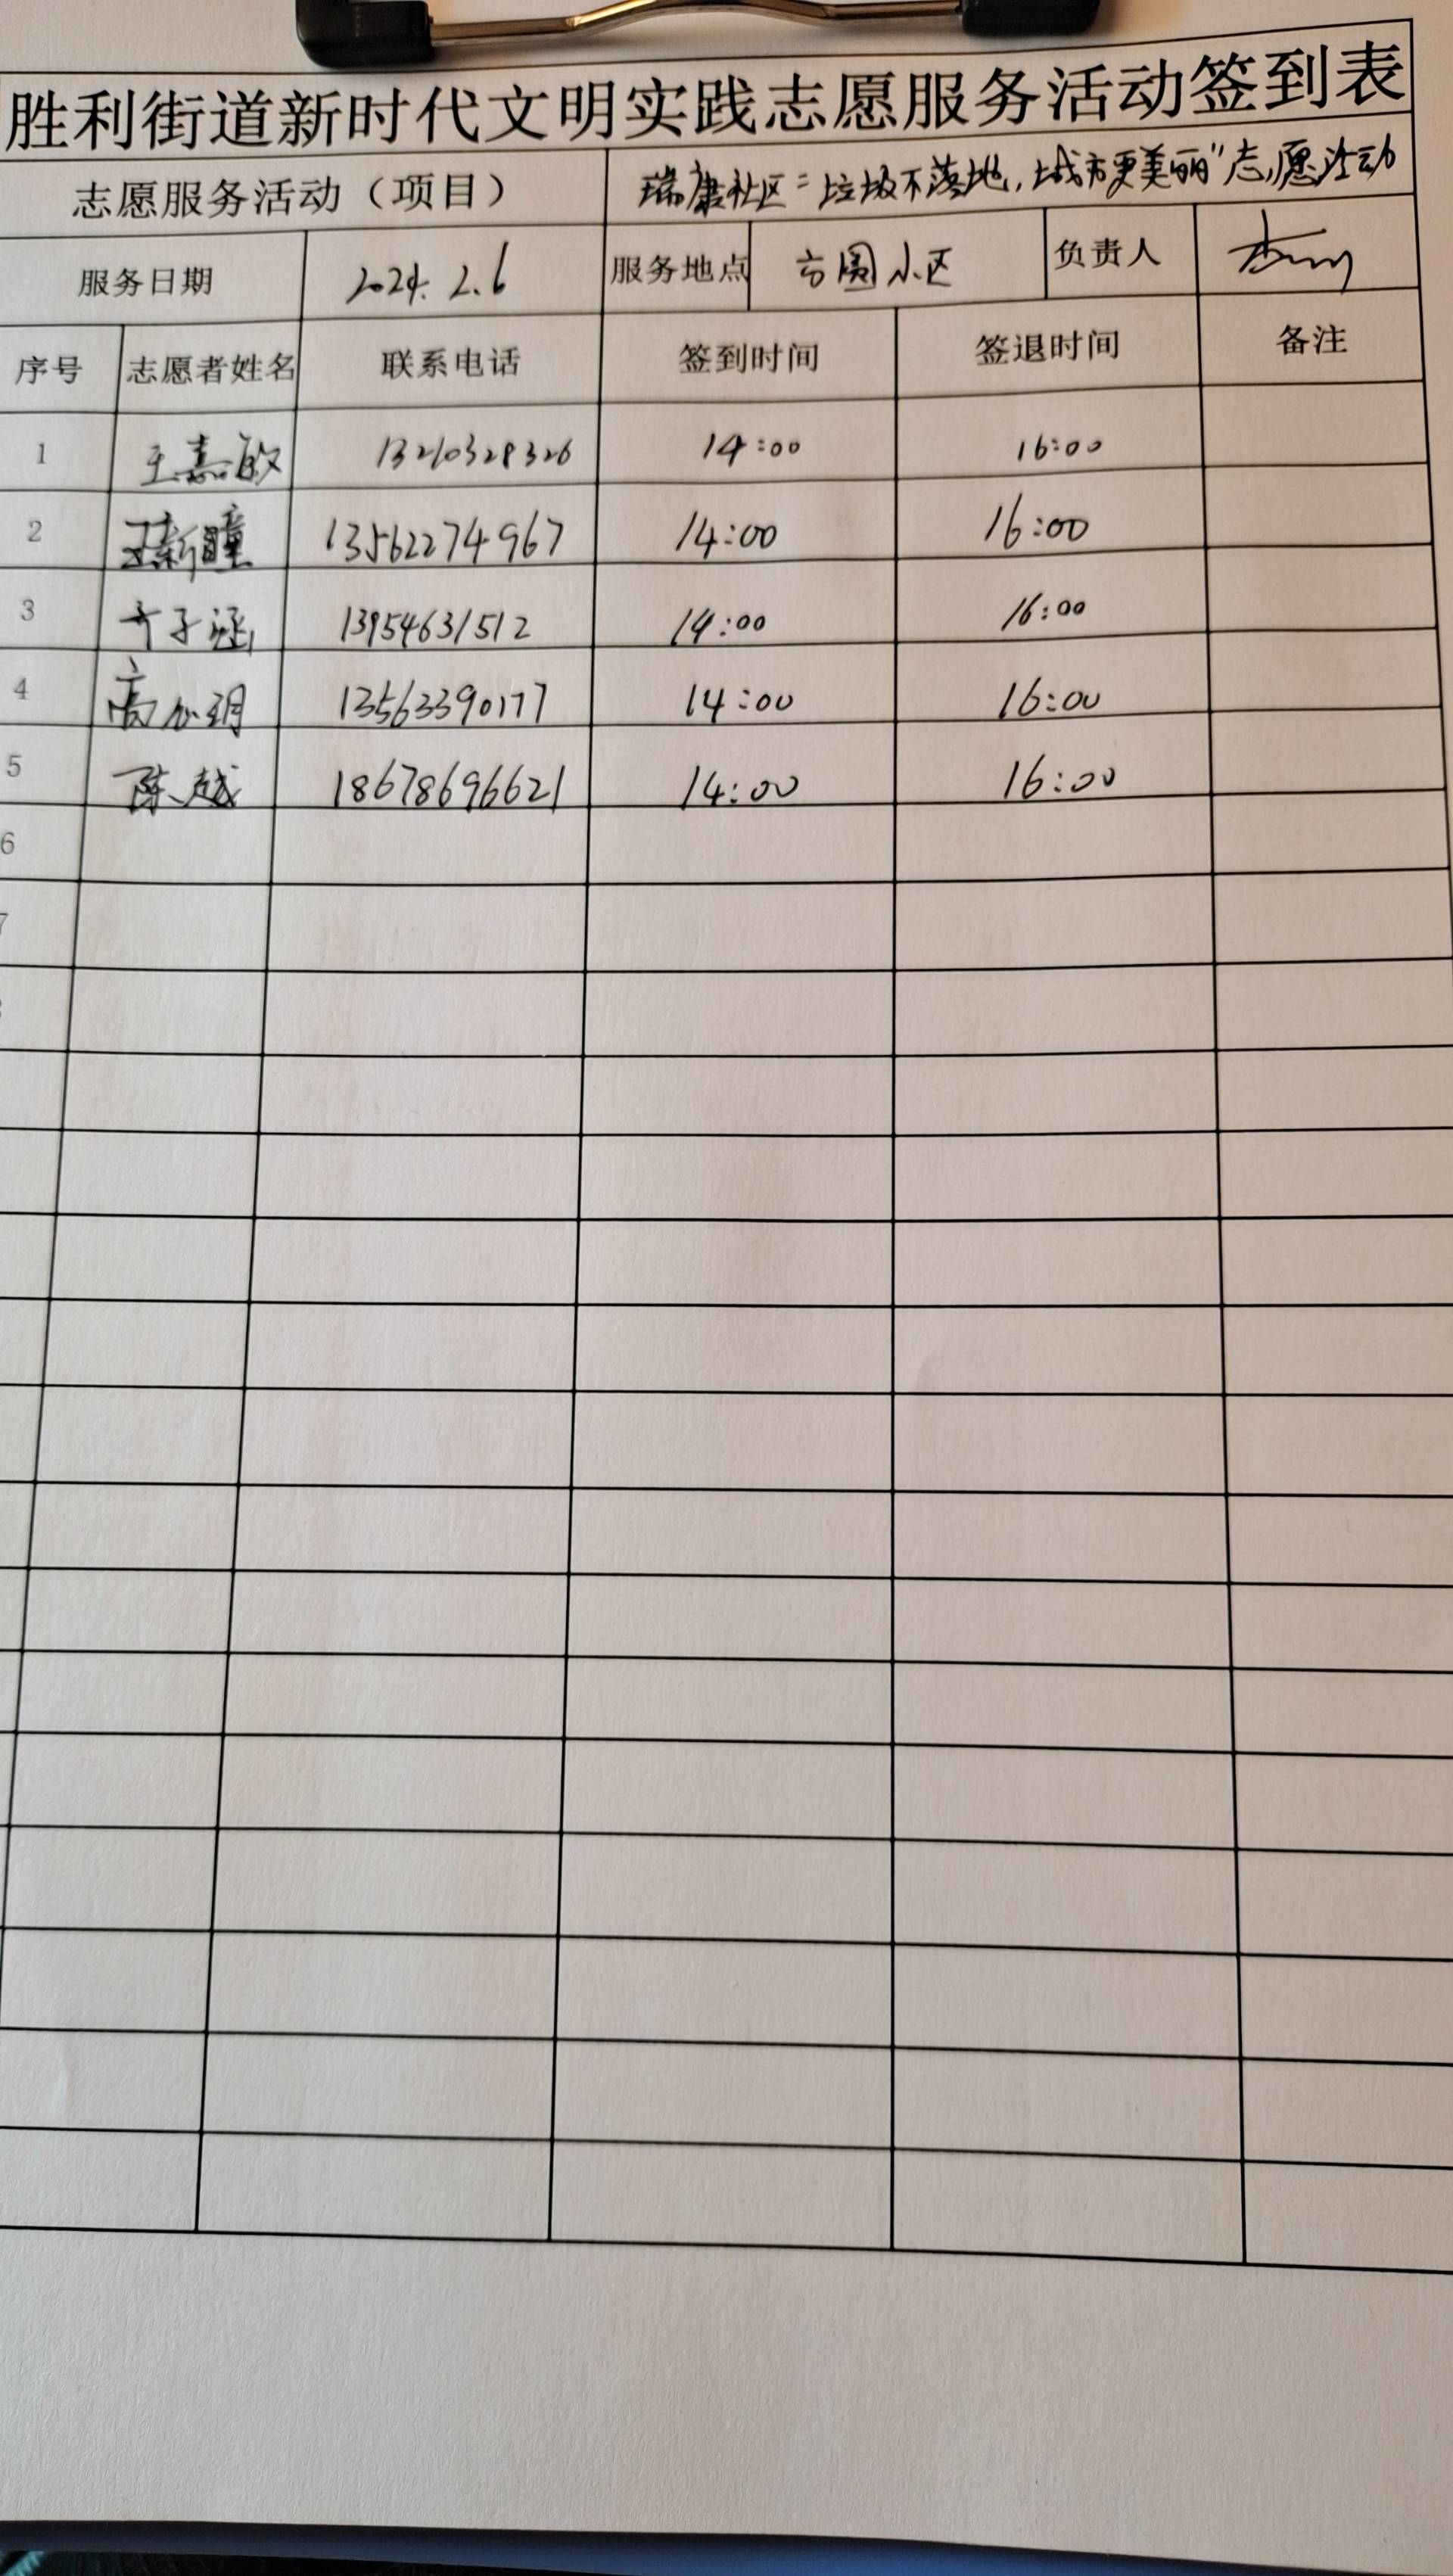 胜利街道新时代文明实践志愿服务活动签到表
志愿服务活动（项目） 瑞康社区"垃圾不落地，城市更美丽"志愿活动
服务日期 2024.2.6 服务地点 方圆小区 负责人
序号 志愿者姓名 联系电话 签到时间 签退时间 备注
1 王嘉敏 13210328326 14:00 16:00
2 王新瞳 13562274967 14:00 16:00
3 齐子涵 13954631512 14:00 16:00
4 高公玥 13563390177 14:00 16:00
5 陈越 18678696621 14:00 16:00
6
7